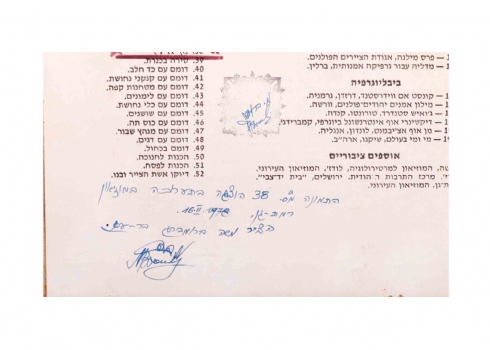 1 — פרס מילגה, אגודת הציירים הפולנים.
1 — מדליה עבור גרפיקה אמנותית, ברלין.
ביבליוגרפיה
— קונסט אם ווידרסטנד, דרזדן, גרמניה.
— מילון אמנים יהודים־פולנים, וורשה.
— ג'ואיש סטנדרד, טורונטו, קנדה.
— דיקטיונרי אוף אינטרנשונל ביוגרפי, קמברידג'.
— מן אוף אצ'יבמנט, לונדון, אנגליה.
19 — מי ומי בעולם, שיקגו, ארה"ב.
אוספים ציבוריים
המוזיאון למרטירולוגיה, לודז', המוזיאון העירוני,
מרכז התרבות היהודית. ירושלים, "בית ידצבי",
־גן, המוזיאון העירוני.
39. סירה בכנרת.
40. דומם עם כד חלב.
41. דומם עם קנקני נחושת.
42. דומם עם מטחנות קפה.
43. דומם עם לימונים.
44. דומם עם כלי נחושת.
45. דומם עם שושנים.
46. דומם עם כוס תה.
47. דומם עם מגהץ שבור.
48. דומם עם דגים.
49. דומם בכחול.
50. הכנות לחנוכה.
51. הכנות לפסח.
52. דיוקן אשת הצייר ובנו.
התמונה מס 38 הוצגה בתערוכה במוזיאון
רמת-גן. 16.II.1978
הצייר משה